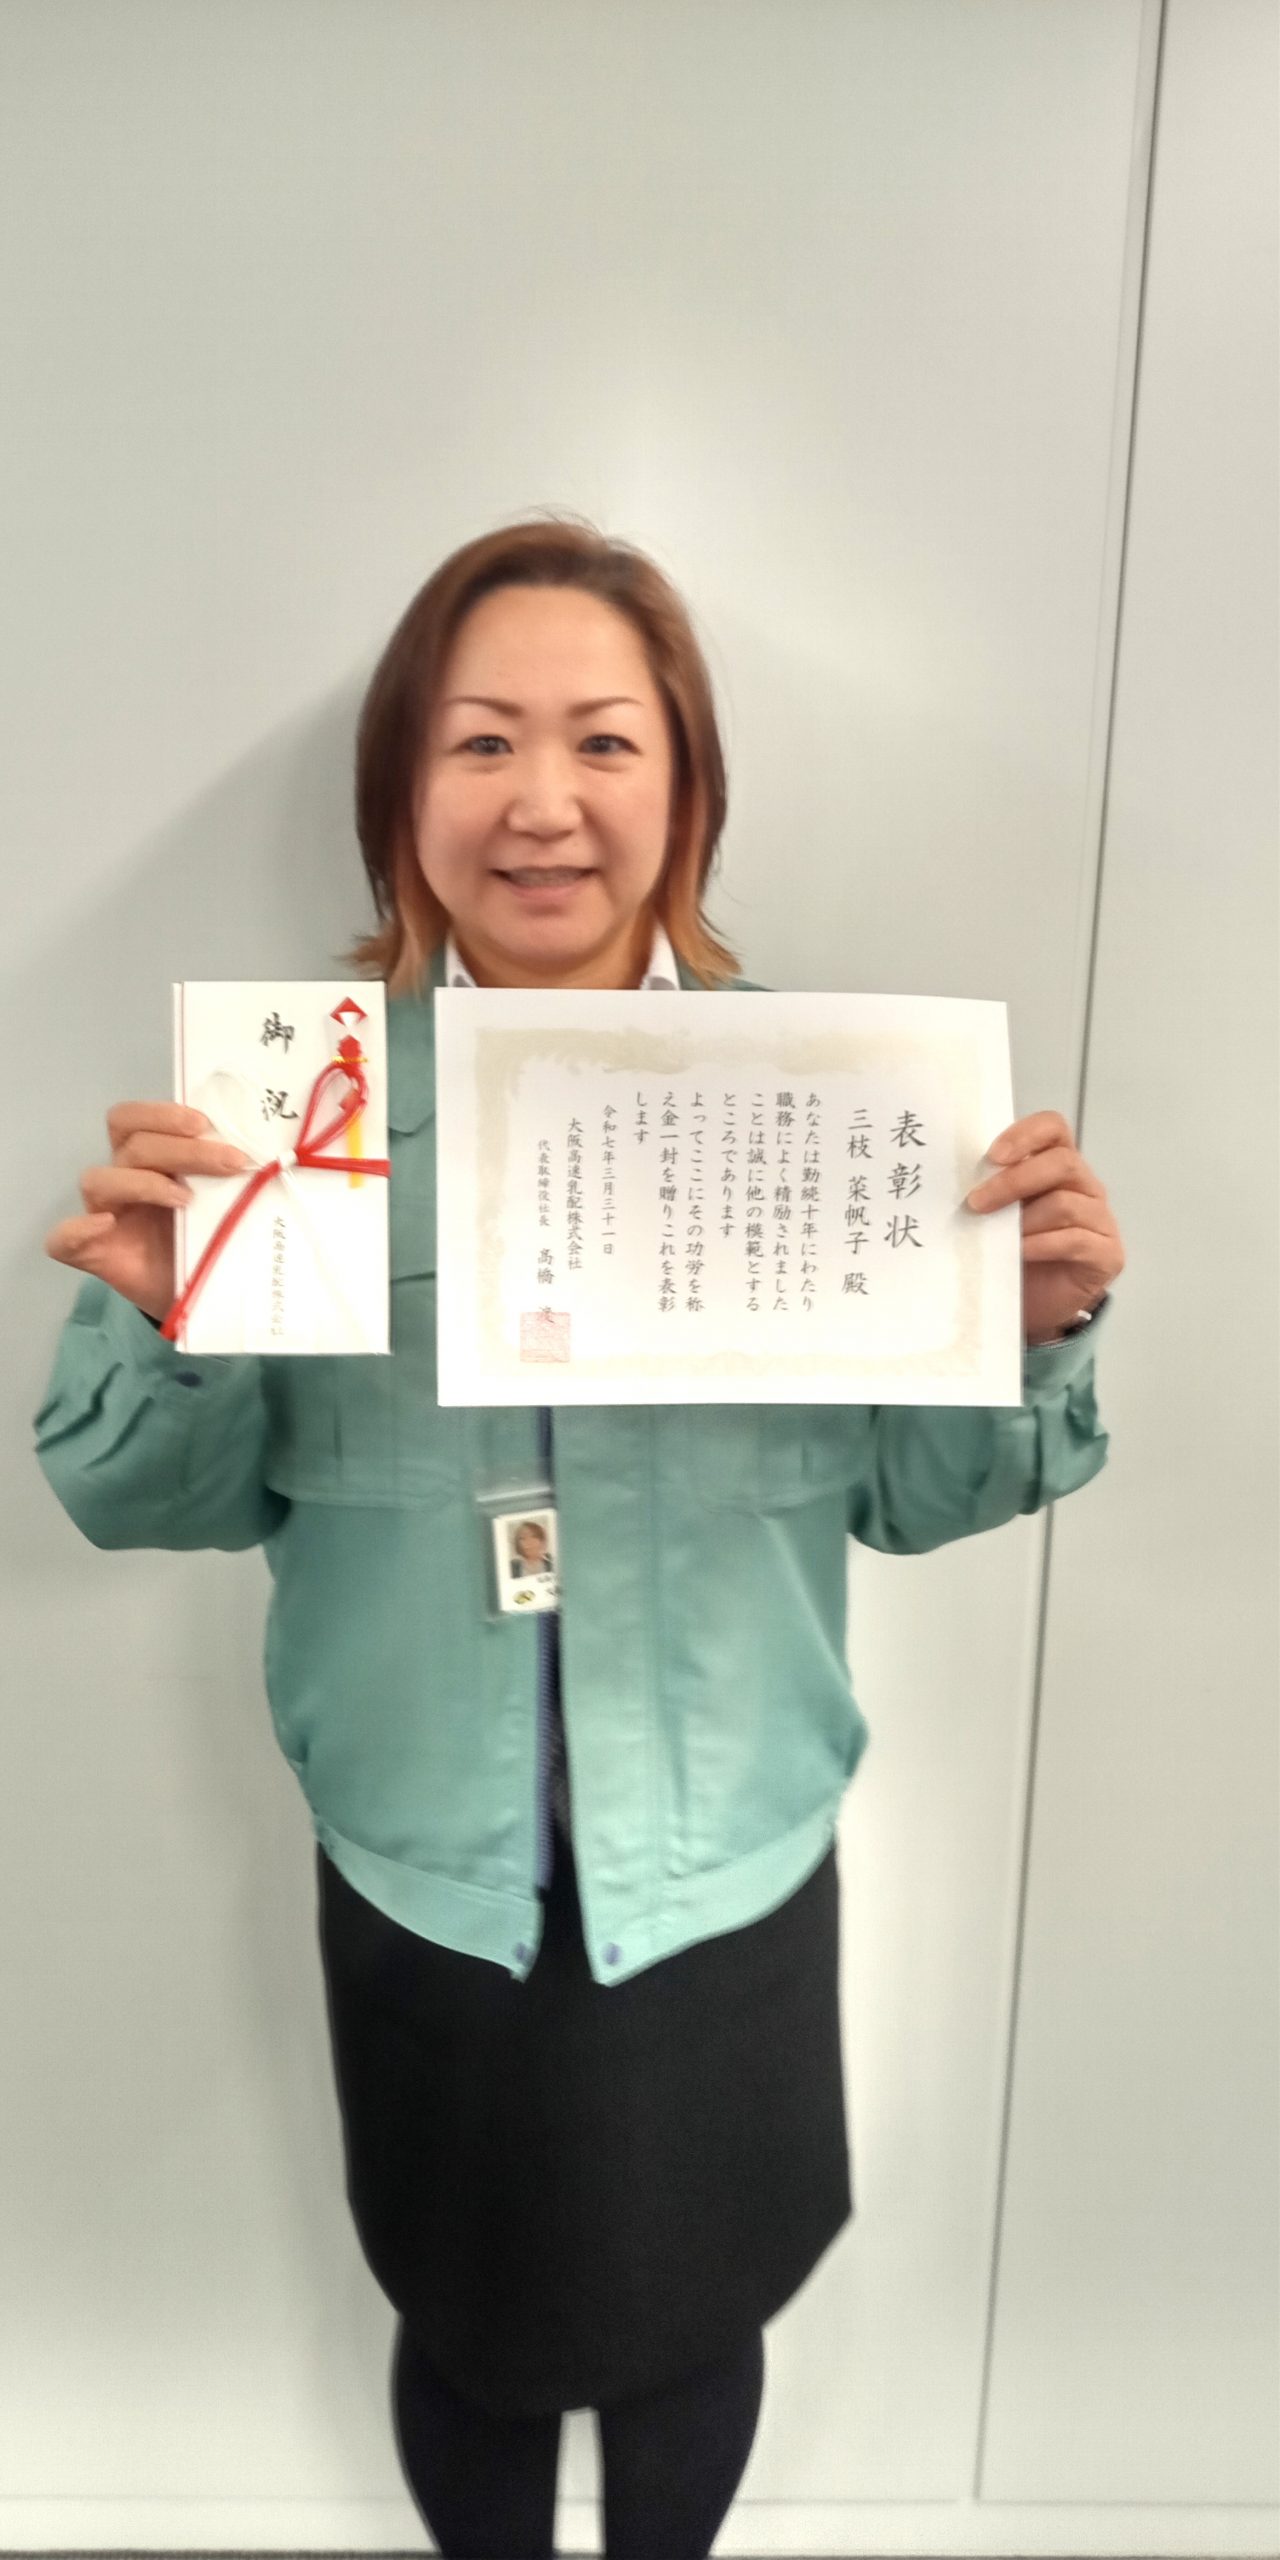 御祝
大阪高速乳配株式会社
表彰状
三枝 菜帆子 殿
あなたは勤続十年にわたり
職務によく精励されました
ことは誠に他の模範とする
ところであります
よってここにその功労を称
え金一封を贈りこれを表彰
します
令和七年三月三十一日
大阪高速乳配株式会社
代表取締役社長 高橋